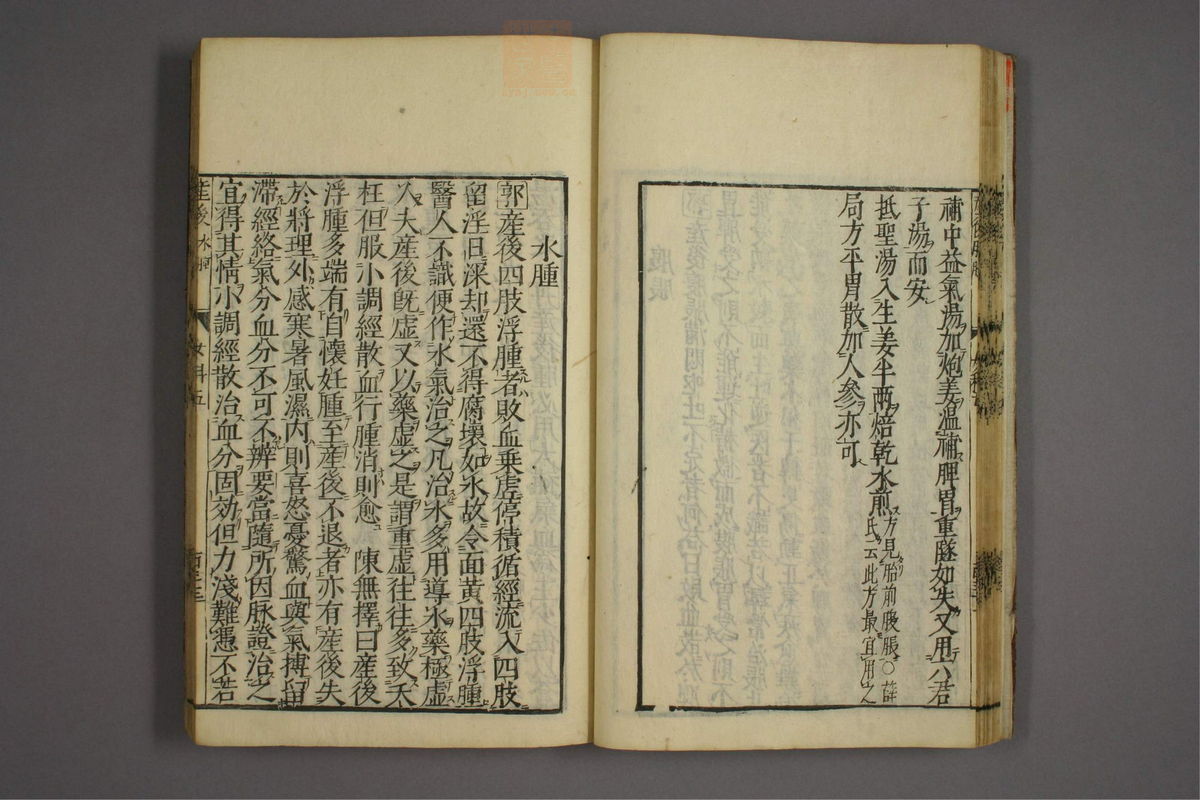 補中益氣湯加炮姜溫補脾胃重墜如失又用六君
子湯而安
抵聖湯入生姜半兩焙乾水煎方見胎前腹脹○薛
氏云此方最宜用之
局方平胃散加人參亦可
水腫
郭產後四肢浮腫者敗血乗虛停積循經流入四肢
留淫日深却還不得腐壞如水故令面黃四肢浮腫
醫人不識便作水氣治之凡治水多用導水藥極虛
人夫產後旣虛又以藥虛之是謂重虛往往多致夭
枉但服小調經散血行腫消則愈 陳無擇曰產後
浮腫多端有自懷妊腫至產後不退者亦有產後失
於將理外感寒暑風濕內則喜怒憂驚血與氣搏留
滯經絡氣分血分不可不辨要當隨所因脉證治之
宜得其情小調經散治血分固効但力淺難憑不若
產後 水腫 女科五